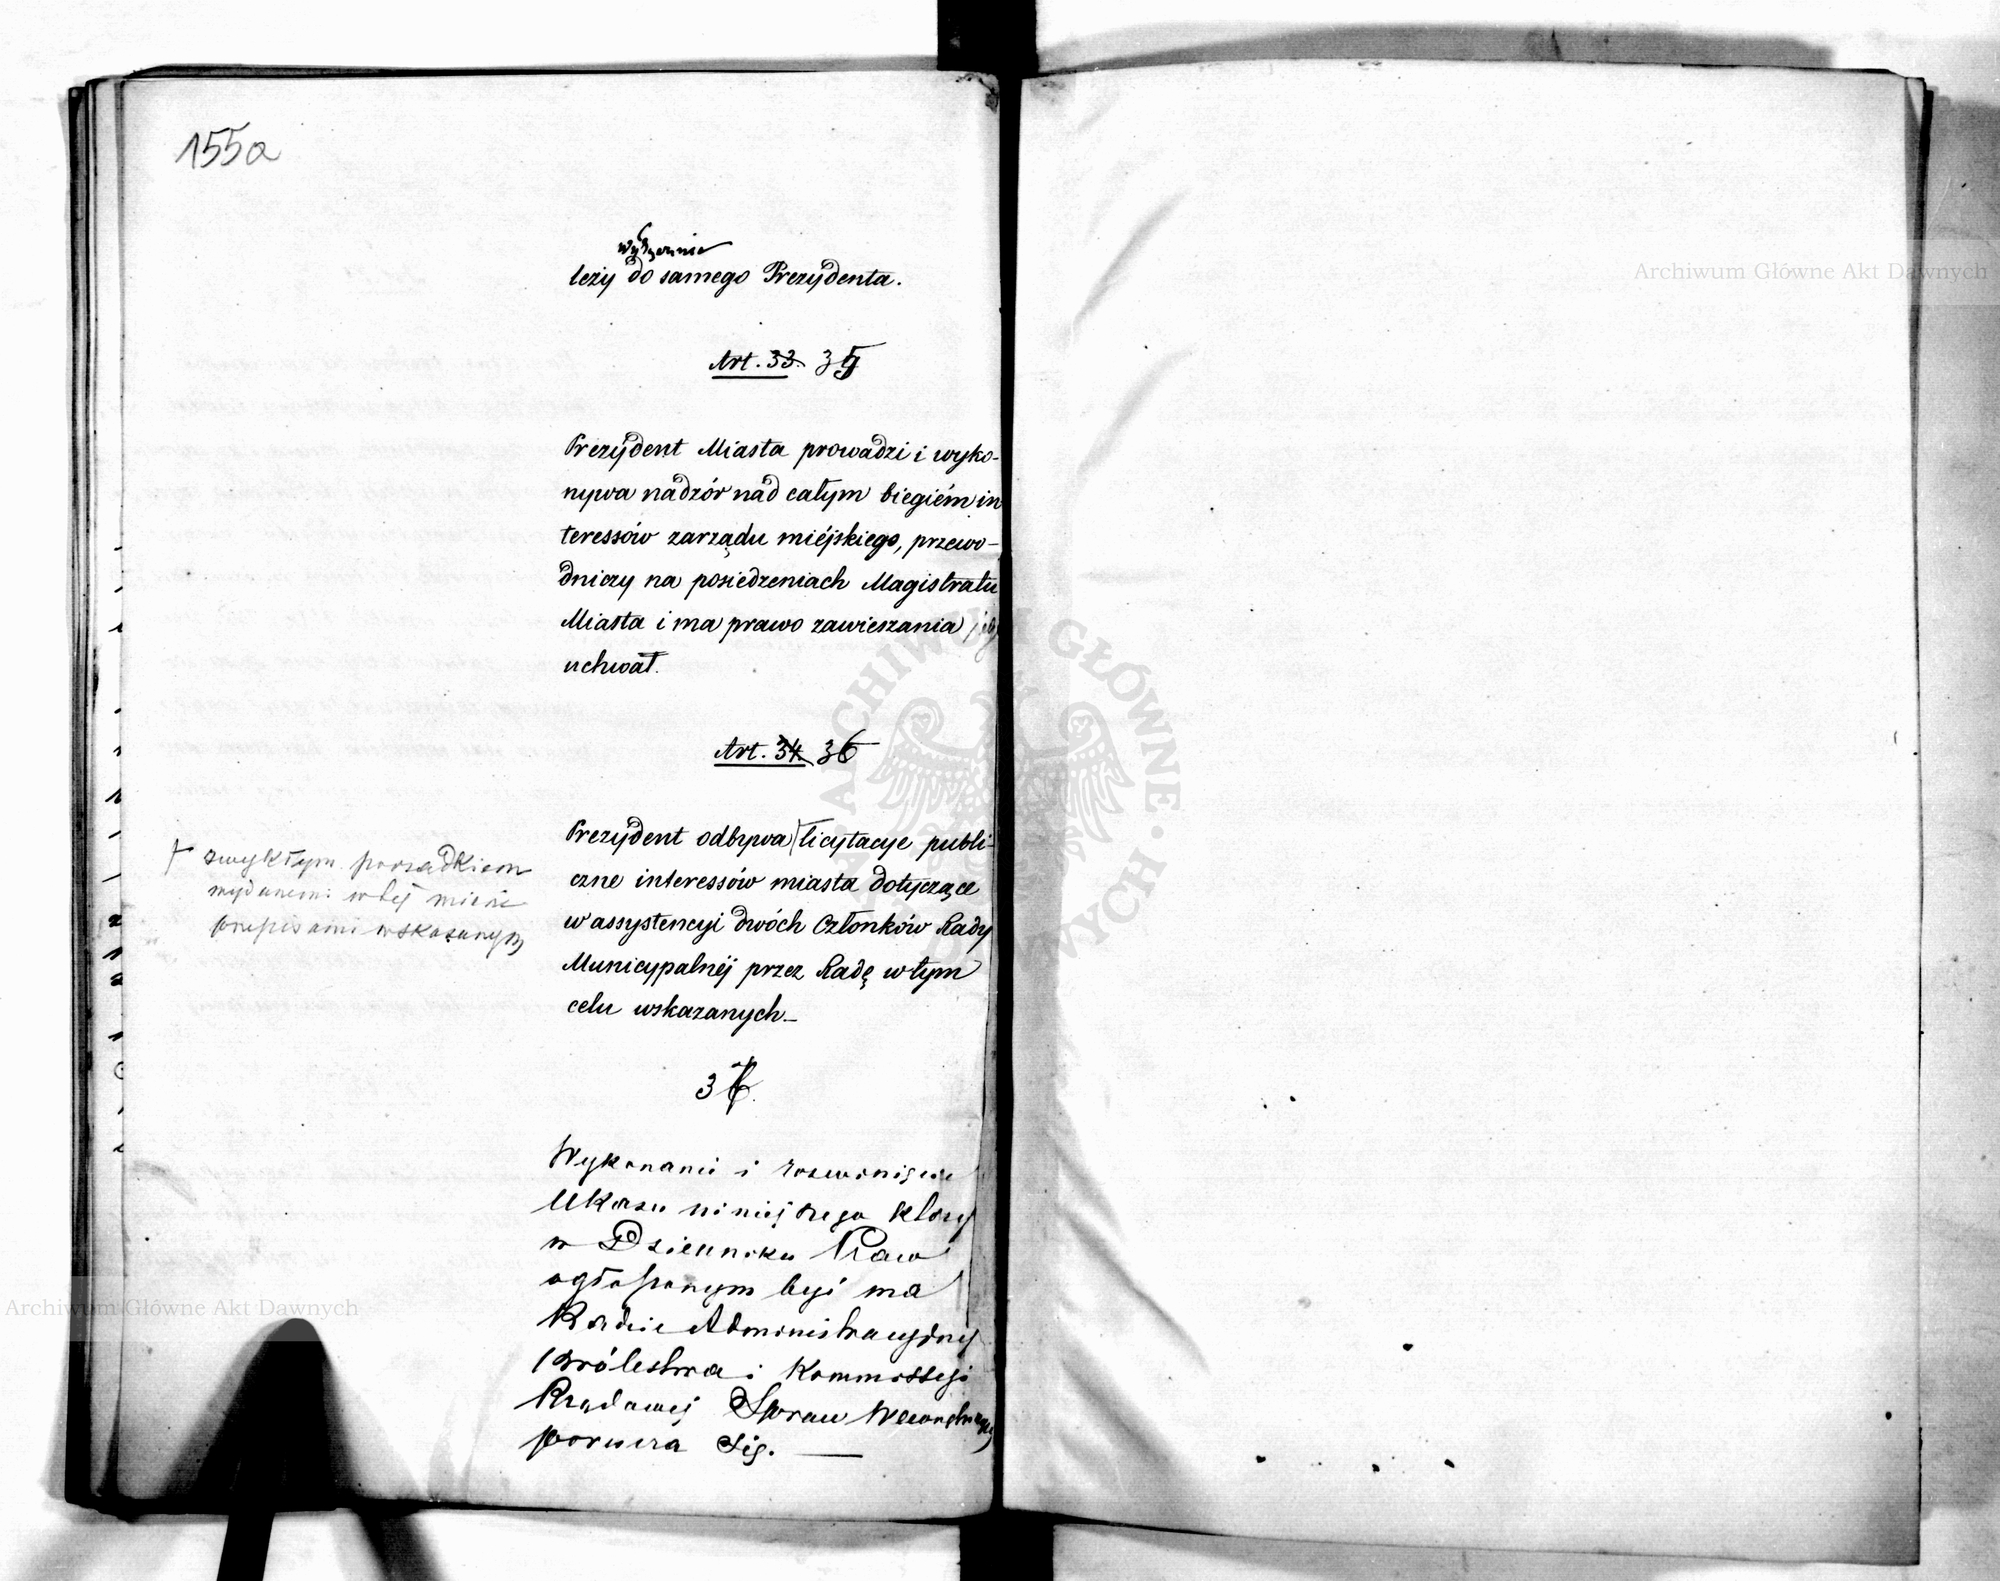 155a
wyłącznie
leży do samego Prezydenta.
Art. 33. 35
Prezydent Miasta prowadzi i wyko-
nywa nadzór nad całym biegiém in
teressów zarządu miéjskiego, przewo-
dniczy na posiedzeniach Magistratu
Miasta i ma prawo zawieszania jego
uchwał.
Art. 34. 36
Prezydent odbywa licytacye publi-
czne interessów miasta dotyczące
w assystencyi dwóch Członków Rady
Municypalnéj przez Radę w tym
celu wskazanych.
zwykłym porządkiem
wydanemi w téj mierze
przepisami wskazanym
37.
Wykonanie i rozwinięcie
Ukazu niniejszego który
w Dzienniku Praw
ogłoszonym być ma
Radzie Administracyjnej
Królestwa i Kommissyi
Rządowej Spraw Wewnętrznych
porucza Się.
Archiwum Główne Akt Dawnych
Archiwum Główne Akt Dawnych